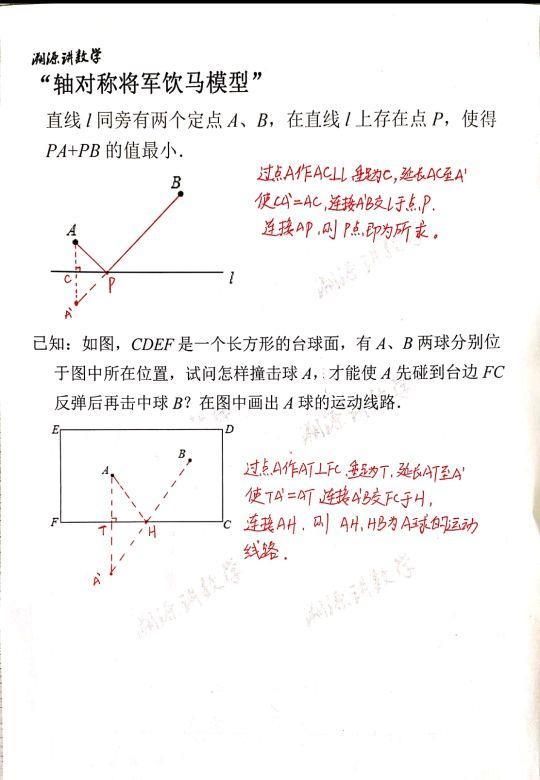 溯源讲数学
“轴对称将军饮马模型”
直线 l 同旁有两个定点 A、B，在直线 l 上存在点 P，使得
PA+PB 的值最小．
过点A作AC⊥l 垂足为C，延长AC至A'
使CA'=AC，连接A'B交l于点P．
连接AP，则P点即为所求。
B
A
C
P
l
A'
溯源讲数学
已知：如图，CDEF 是一个长方形的台球面，有 A、B 两球分别位
于图中所在位置，试问怎样撞击球 A，才能使 A 先碰到台边 FC
反弹后再击中球 B？在图中画出 A 球的运动线路．
溯源讲数学
E
D
B
A
F
T
H
C
A'
过点A作AT⊥FC 垂足为T．延长AT至A'
使TA'=AT 连接A'B交FC于H，
连接AH．则 AH、HB为A球的运动
线路．
溯源讲数学
溯源讲数学